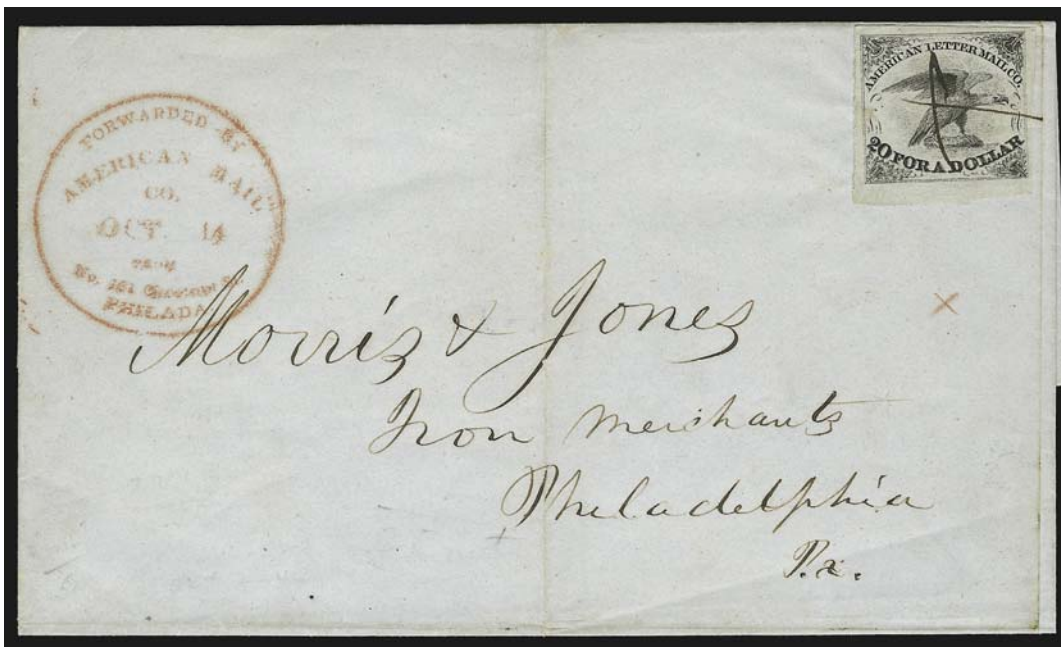 FORWARDED BY
AMERICAN MAIL
CO.
OCT. 14
FROM
No. 101 Chesnut St
PHILADA
AMERICAN LETTER MAIL CO.
20 FOR A DOLLAR
Morris & Jones
Iron Merchants
Philadelphia
Pa.